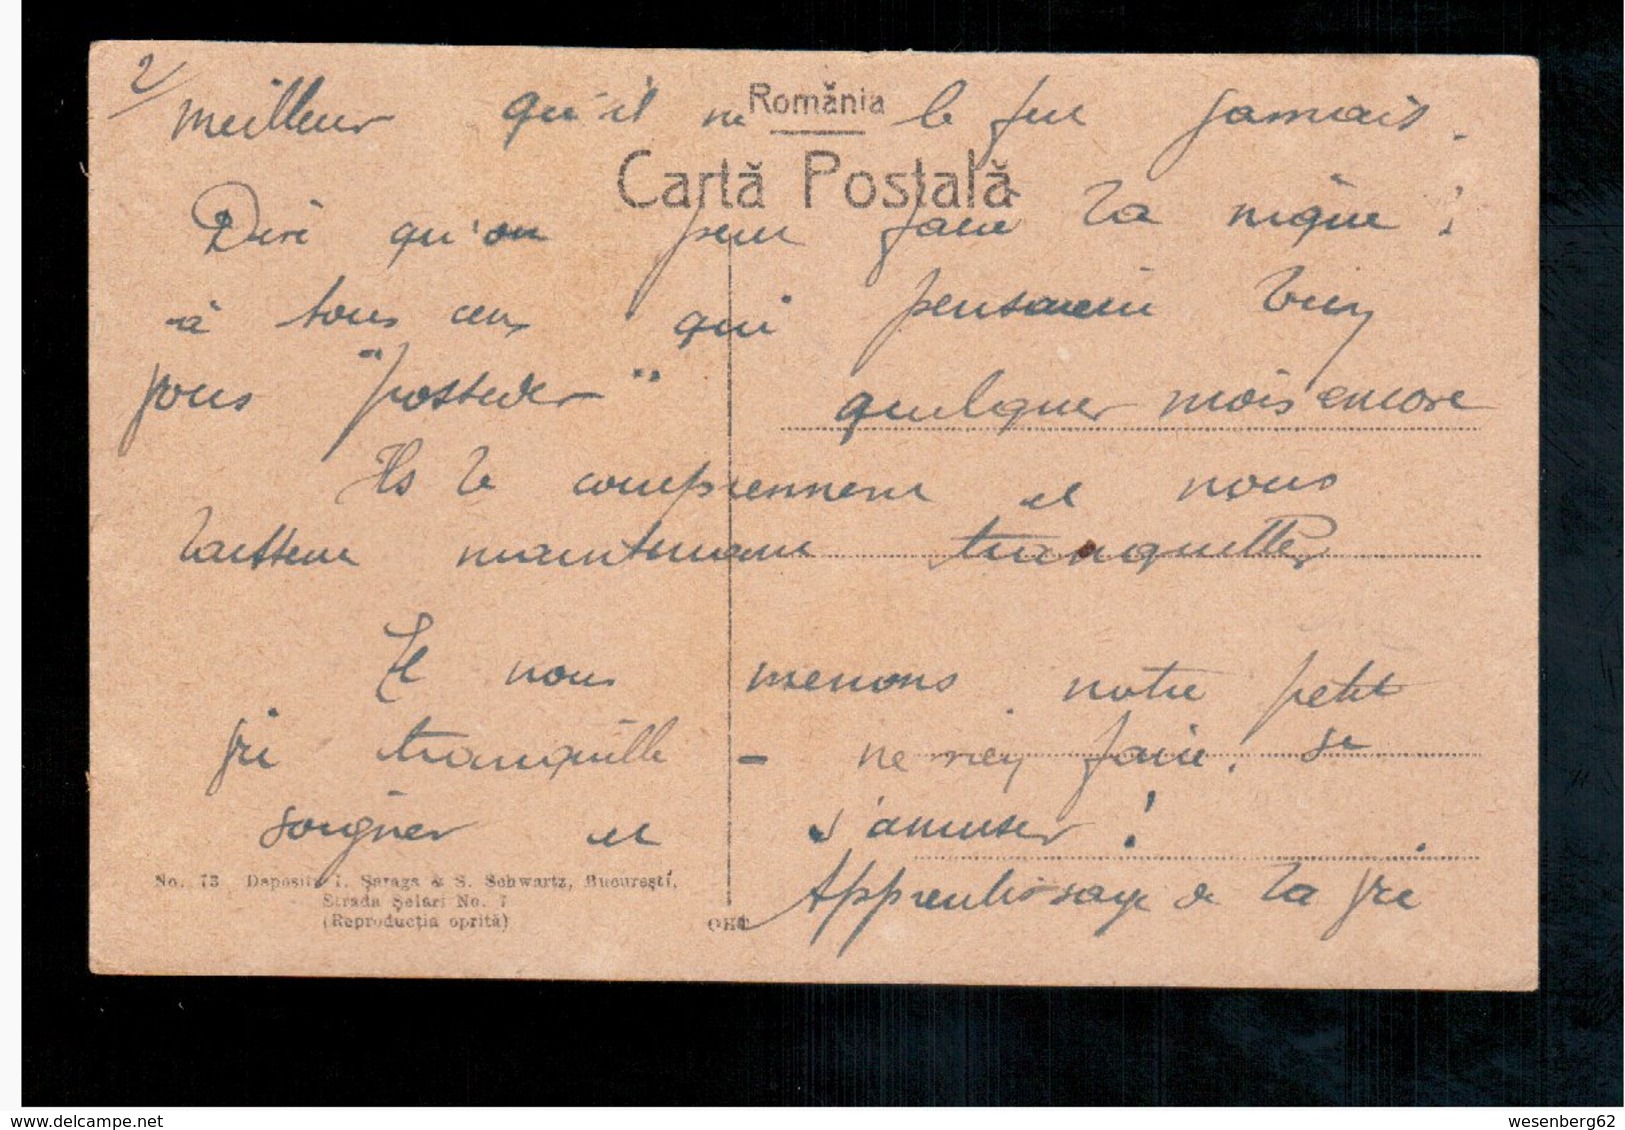 2/
meilleur qu'il ne le fut jamais.
România
Cartă Poștală
Dire qu'on peut faire la nique !
à tous ceux qui pensaient bien
vous "posséder" quelques mois encore
Ils le comprennent et nous
laissent maintenant tranquilles
Et nous menons notre petit
vie tranquille - ne rien faire. se
soigner et s'amuser !
Apprentissage de la vie
No. 73 Depositu I. Șaraga & S. Schwartz, București,
Strada Șelari No. 7
(Reproducția oprită)
wesenberg62